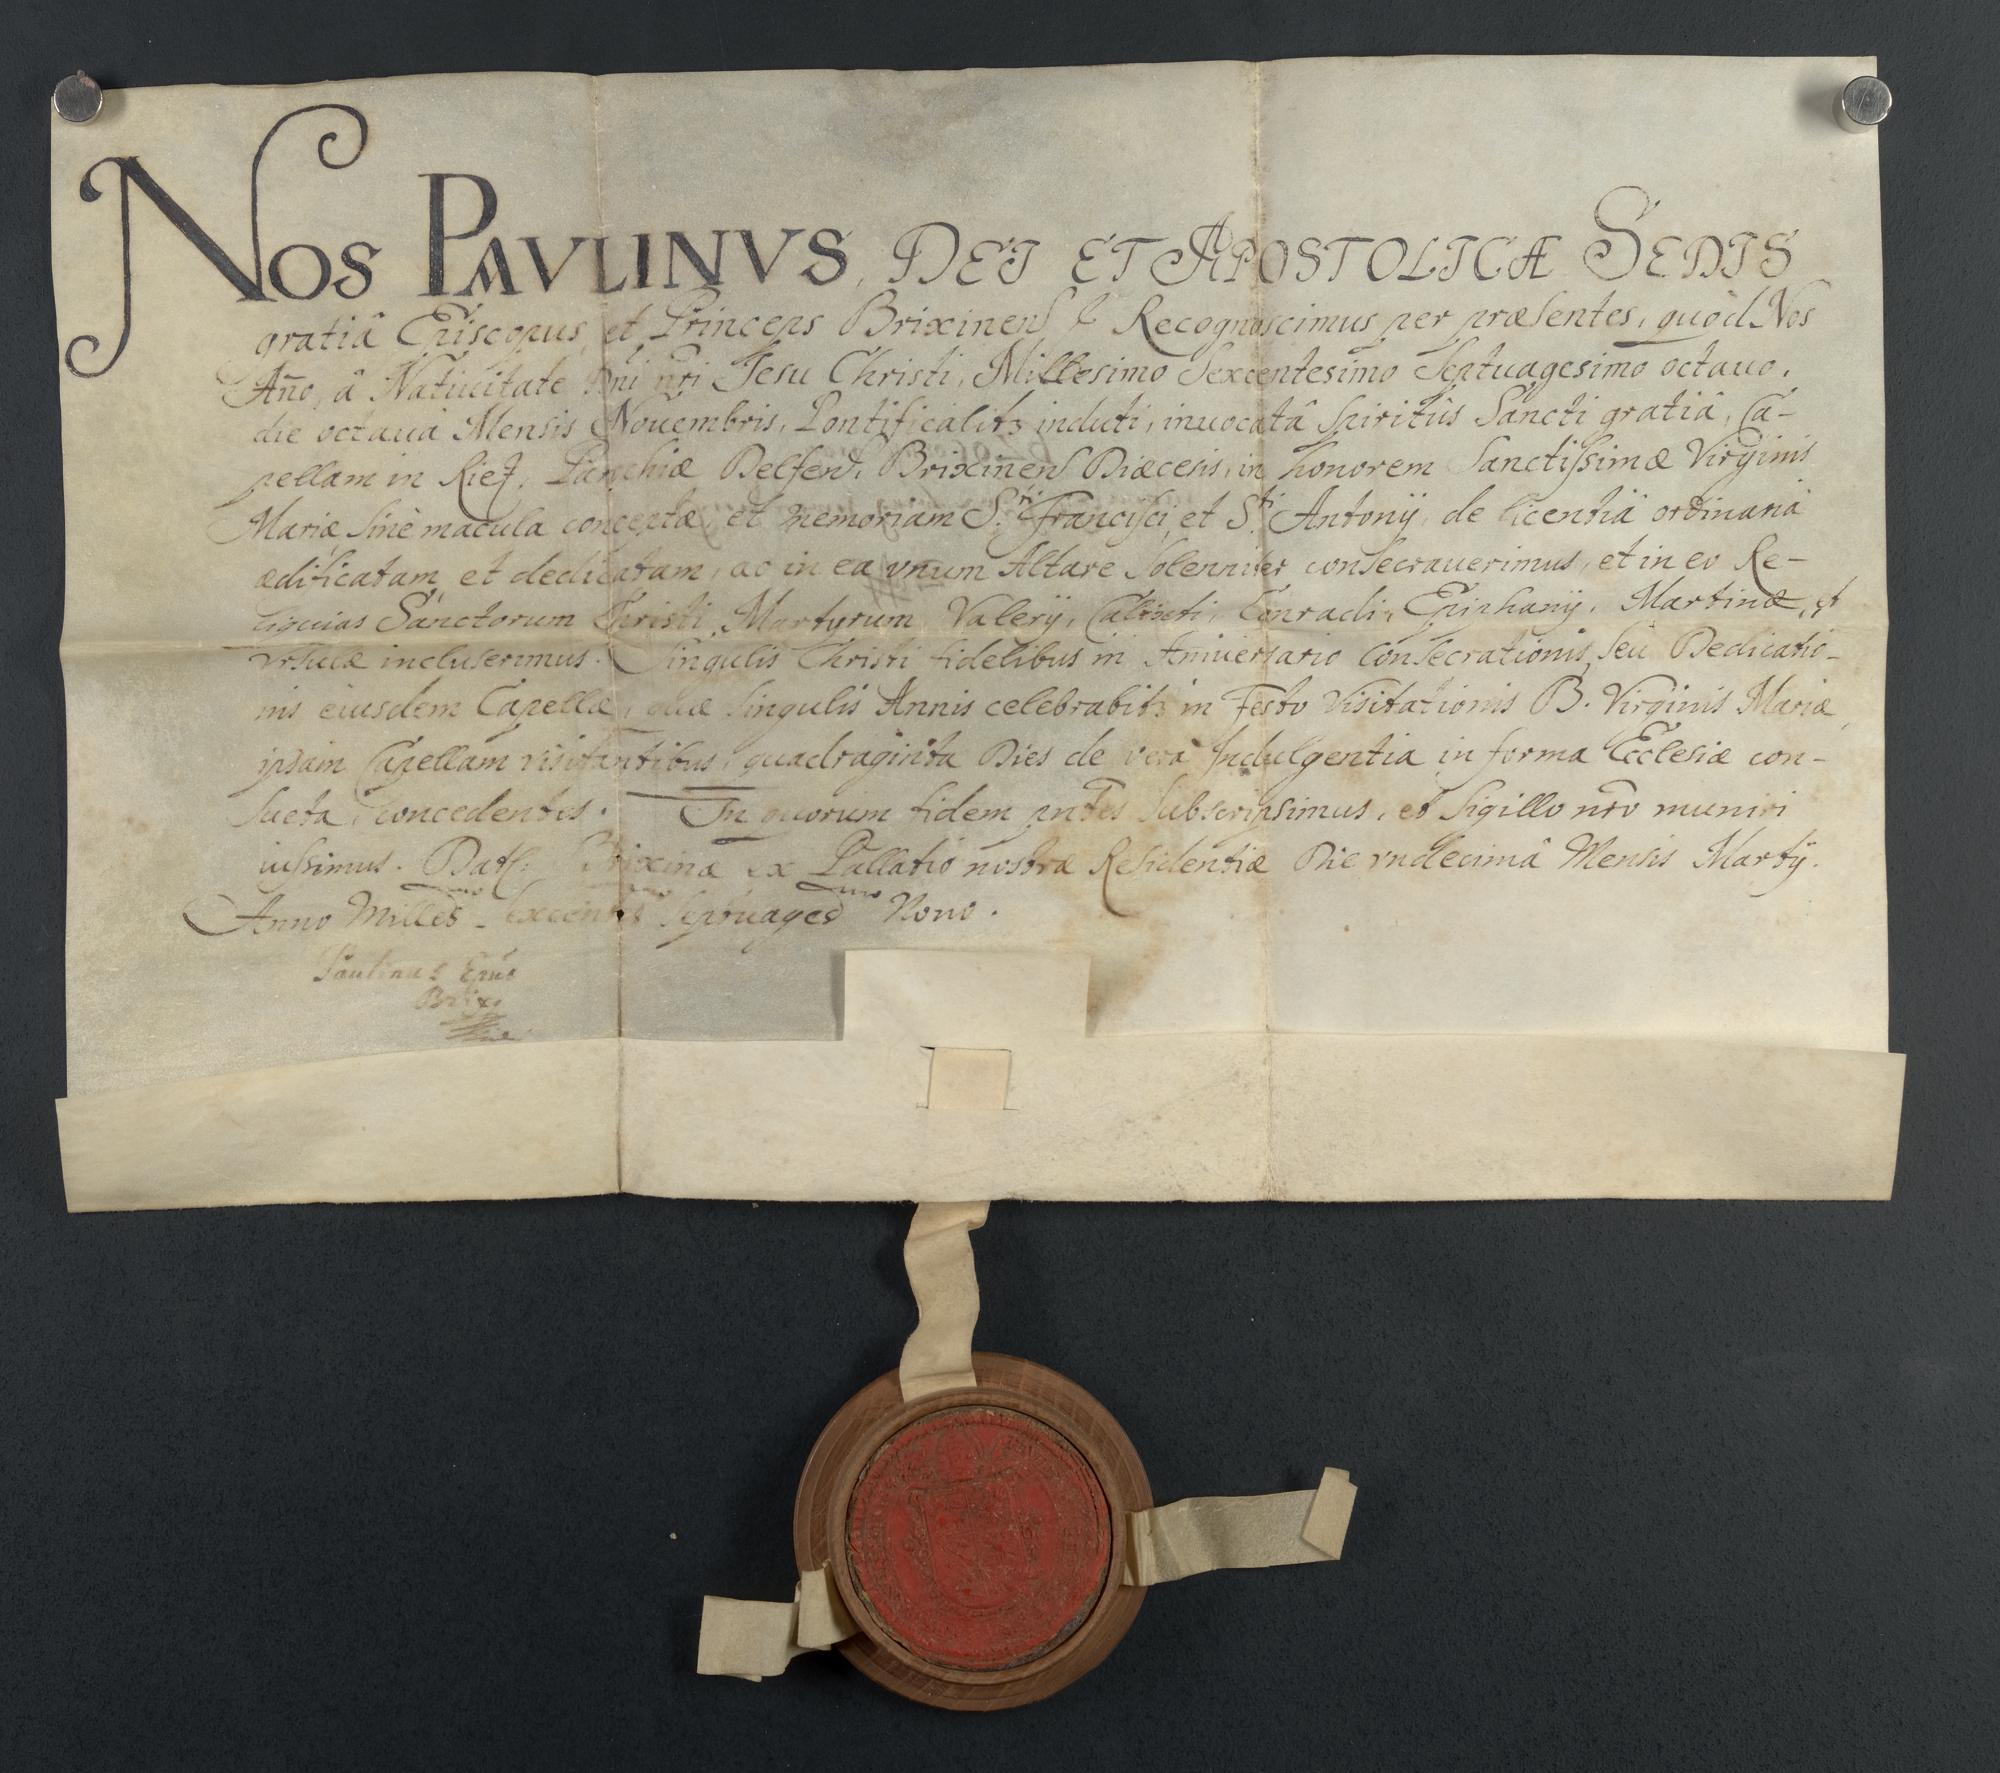 NOS PAVLINVS, DEJ ET APOSTOLICÆ SEDIS
gratiâ Episcopus, et Princeps Brixinens. &. Recognoscimus per præsentes, quòd Nos
Año, â Natiuitate Dni nri Jesu Christi, Millesimo Sexcentesimo Septuagesimo octauo,
die octaua Mensis Nouembris, Pontificalitz induti, inuocatâ Spiritûs Sancti gratiâ, Ca-
pellam in Rietz, Parochiæ Delfens. Brixinens Diæcesis, in honorem Sanctissimæ Virginis
Mariæ sinè macula conceptæ, et memoriam S.ti Francisci, et S.ti Antonÿ, de licentiâ ordinariâ
ædificatam et dedicatam, ac in ea vnum Altare Solenniter consecrauerimus, et in eo Re-
liquias Sanctorum Christi Martyrum Valerÿ, Calixti, Conradi, Epiphanÿ, Martinæ, et
Vrsulæ incluserimus. Singulis Christi fidelibus in Anniuersario Consecrationis, seu Dedicatio-
nis eiusdem Capellæ, quæ singulis Annis celebrabitz in Festo Visitationis B. Virginis Mariæ
ipsam Capellam visitantibus, quadraginta Dies de vera Indulgentia in forma Ecclesiæ con-
sueta, concedentes. In quorum fidem pntes subscripsimus, et Sigillo nro muniri
iussimus. Dat. Brixinæ ex Pallatio nostræ Residentiæ Die vndecimâ Mensis Martÿ.
Anno Milles.mo Sexcentes.mo Septuages.mo Nono.
Paulinus Epus
Brix.